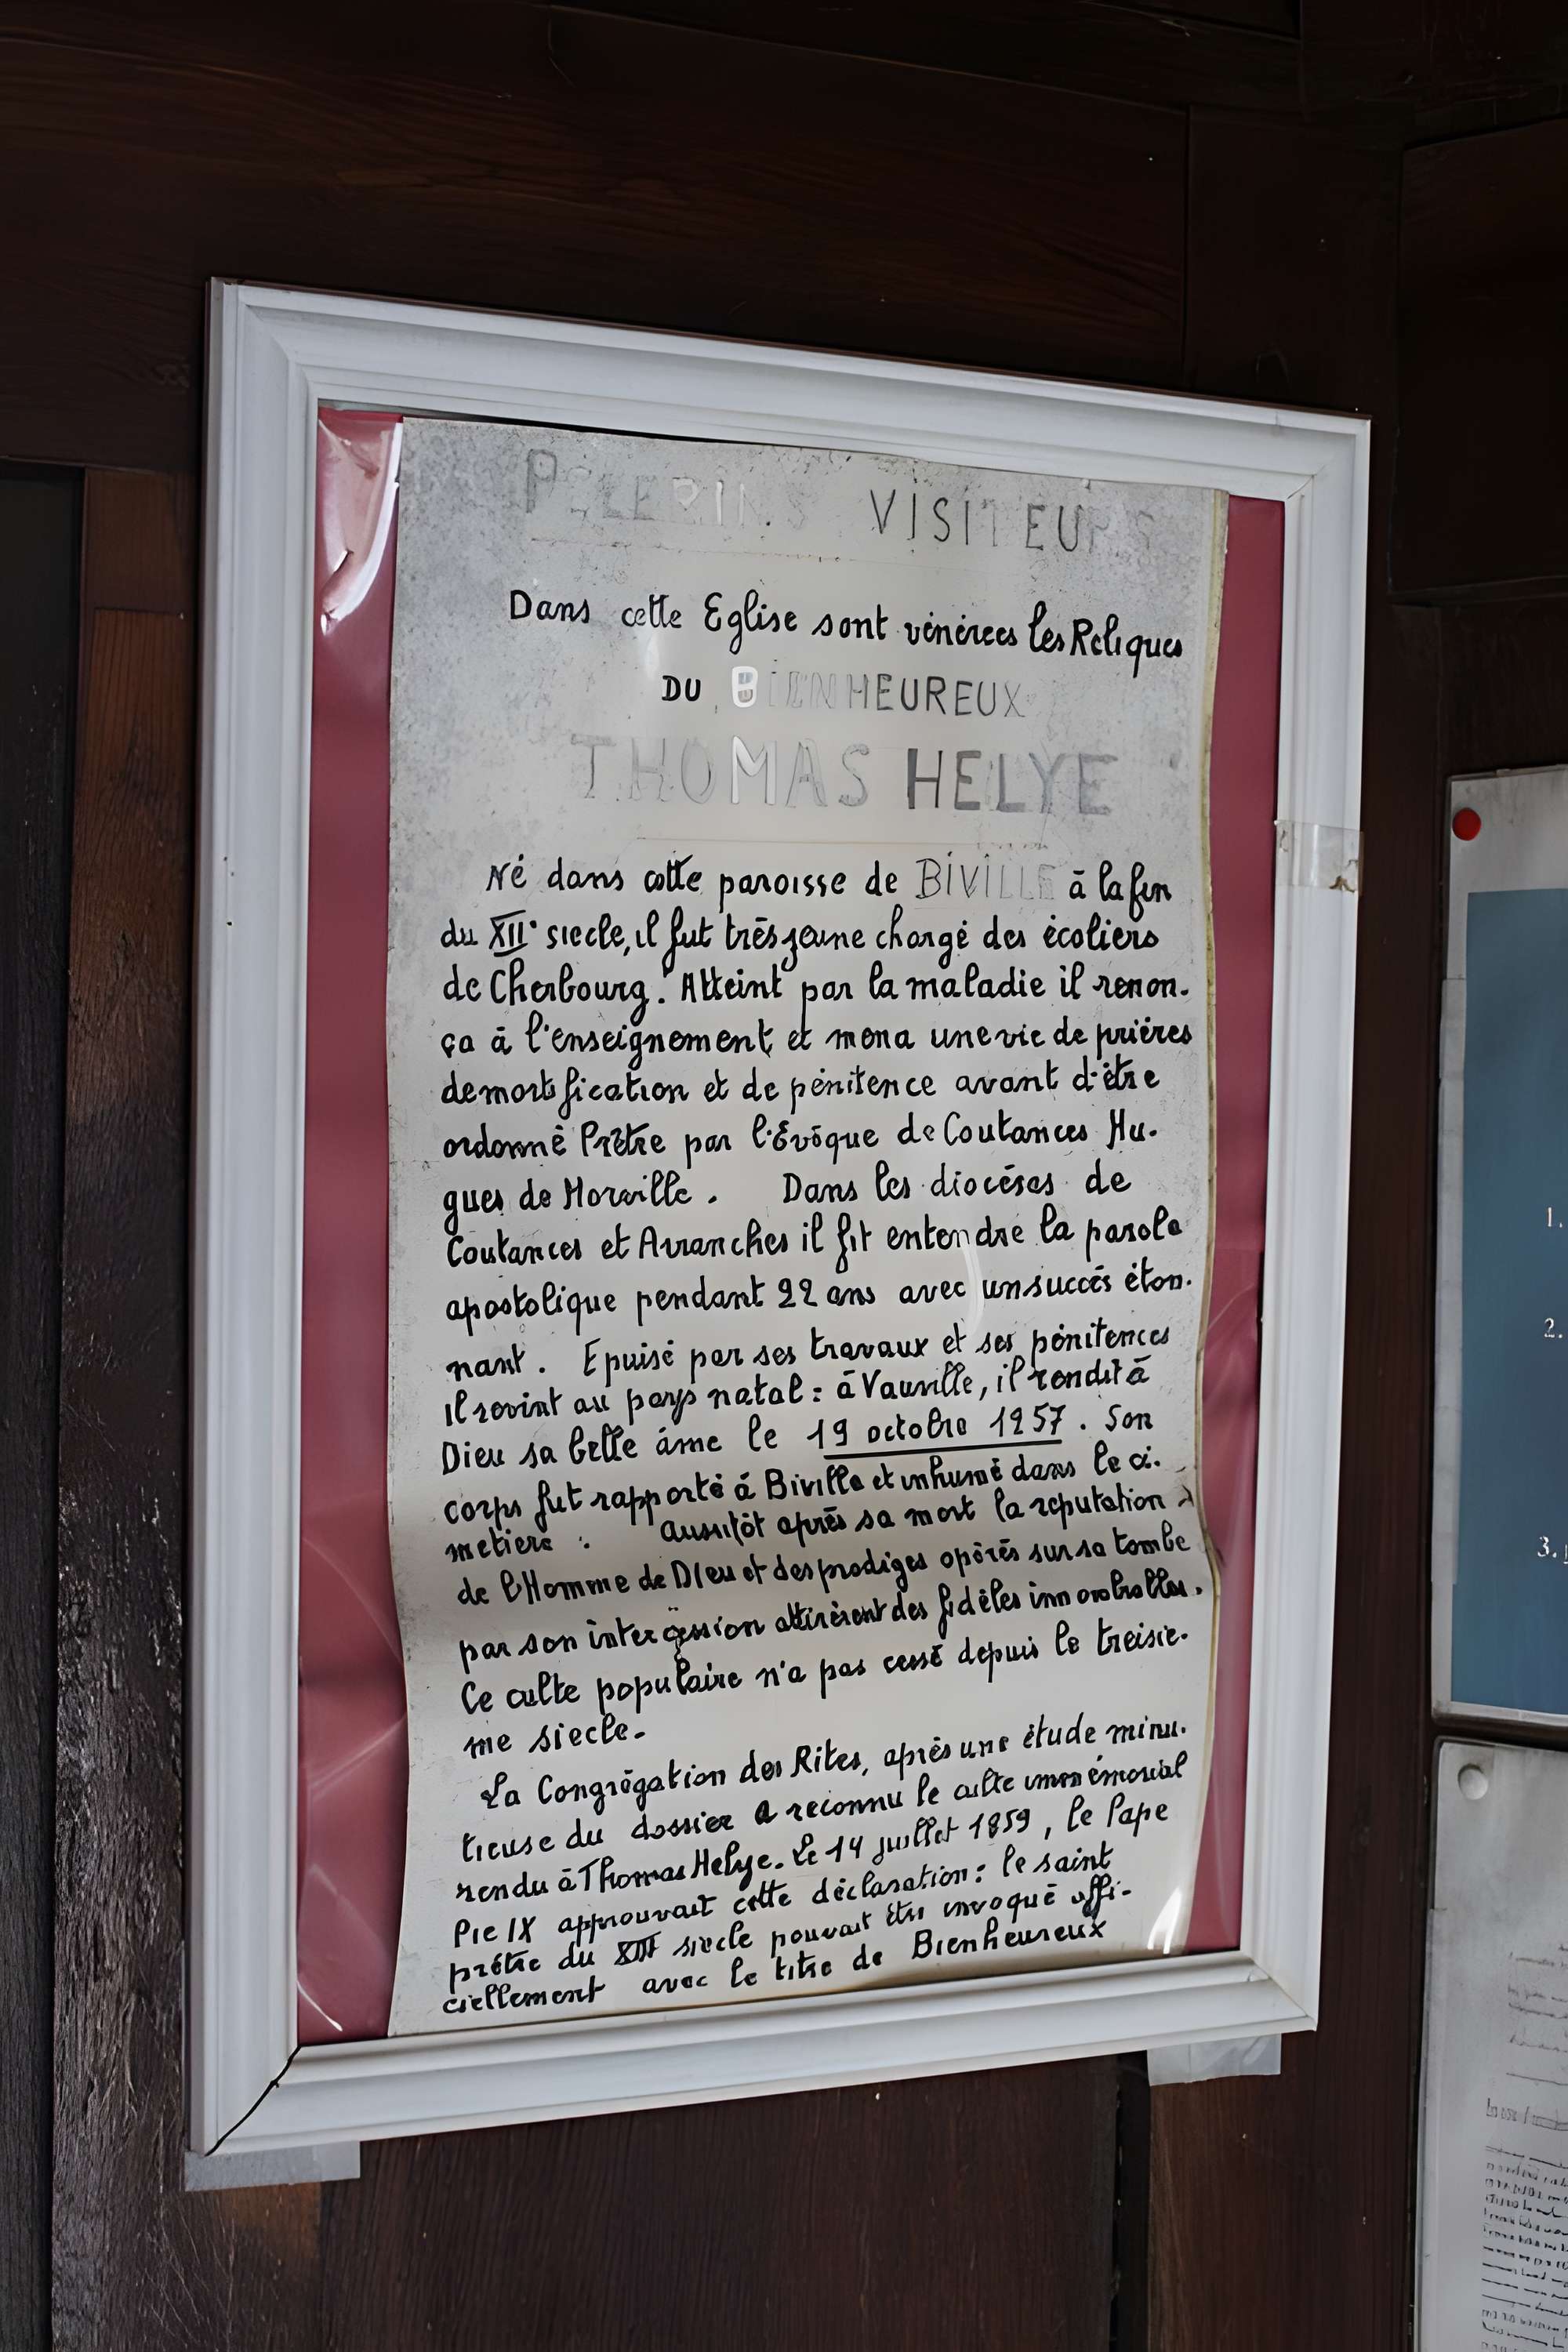 PELERINS VISITEURS
Dans cette Eglise sont vénérées les Reliques
DU BIENHEUREUX
THOMAS HELYE
Né dans cette paroisse de BIVILLE à la fin
du XIIe siecle, il fut très jeune chargé des écoliers
de Cherbourg. Atteint par la maladie il renon-
ça à l'enseignement et mena une vie de prières
de mortification et de pénitence avant d'être
ordonné Prêtre par l'Evêque de Coutances Hu-
gues de Morville. Dans les diocèses de
Coutances et Avranches il fit entendre la parole
apostolique pendant 22 ans avec un succès éton-
nant. Epuisé par ses travaux et ses pénitences
il revint au pays natal : à Vauville, il rendit à
Dieu sa belle âme le 19 octobre 1257. Son
corps fut rapporté à Biville et inhumé dans le ci-
metière : aussitôt après sa mort la reputation
de l'Homme de Dieu et des prodiges opérés sur sa tombe
par son intercession attirèrent des fidèles innombrables.
Ce culte populaire n'a pas cessé depuis le treisie-
me siecle.
La Congrégation des Rites, après une étude minu-
tieuse du dossier a reconnu le culte immémorial
rendu à Thomas Helye. Le 14 juillet 1859, le Pape
Pie IX approuvait cette déclaration : le saint
prêtre du XIIIe siecle pouvait être invoqué offi-
ciellement avec le titre de Bienheureux
1.
2.
3.